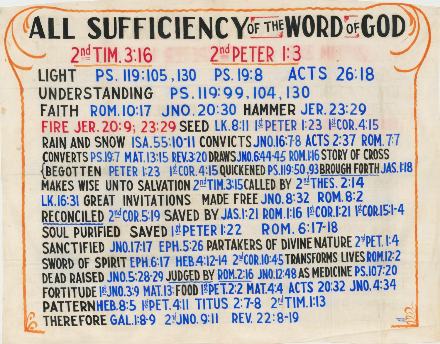 ALL SUFFICIENCY OF THE WORD OF GOD
2nd TIM. 3:16 2nd PETER 1:3
LIGHT PS. 119:105, 130 PS. 19:8 ACTS 26:18
UNDERSTANDING PS. 119:99, 104, 130
FAITH ROM. 10:17 JNO. 20:30 HAMMER JER. 23:29
FIRE JER. 20:9; 23:29 SEED LK. 8:11 1st PETER 1:23 1st COR. 4:15
RAIN AND SNOW ISA. 55:10-11 CONVICTS JNO. 16:7-8 ACTS 2:37 ROM. 7:7
CONVERTS PS. 19:7 MAT. 13:15 REV. 3:20 DRAWS JNO. 6:44-45 ROM. 1:16 STORY OF CROSS
BEGOTTEN PETER 1:23 1st COR. 4:15 QUICKENED PS. 119:50, 93 BROUGH FORTH JAS. 1:18
MAKES WISE UNTO SALVATION 2nd TIM. 3:15 CALLED BY 2nd THES. 2:14
LK. 16:31 GREAT INVITATIONS MADE FREE JNO. 8:32 ROM. 8:2
RECONCILED 2nd COR. 5:19 SAVED BY JAS. 1:21 ROM. 1:16 1st COR. 1:21 1st COR. 15:1-4
SOUL PURIFIED SAVED 1st PETER 1:22 ROM. 6:17-18
SANCTIFIED JNO. 17:17 EPH. 5:26 PARTAKERS OF DIVINE NATURE 2nd PET. 1:4
SWORD OF SPIRIT EPH. 6:17 HEB. 4:12-14 2nd COR. 10:45 TRANSFORMS LIVES ROM. 12:2
DEAD RAISED JNO. 5:28-29 JUDGED BY ROM. 2:16 JNO. 12:48 AS MEDICINE PS. 107:20
FORTITUDE 1st JNO. 3:9 MAT. 13: FOOD 1st PET. 2:2 MAT. 4:4 ACTS 20:32 JNO. 4:34
PATTERN HEB. 8:5 1st PET. 4:11 TITUS 2:7-8 2nd TIM. 1:13
THEREFORE GAL. 1:8-9 2nd JNO. 9:11 REV. 22:8-19